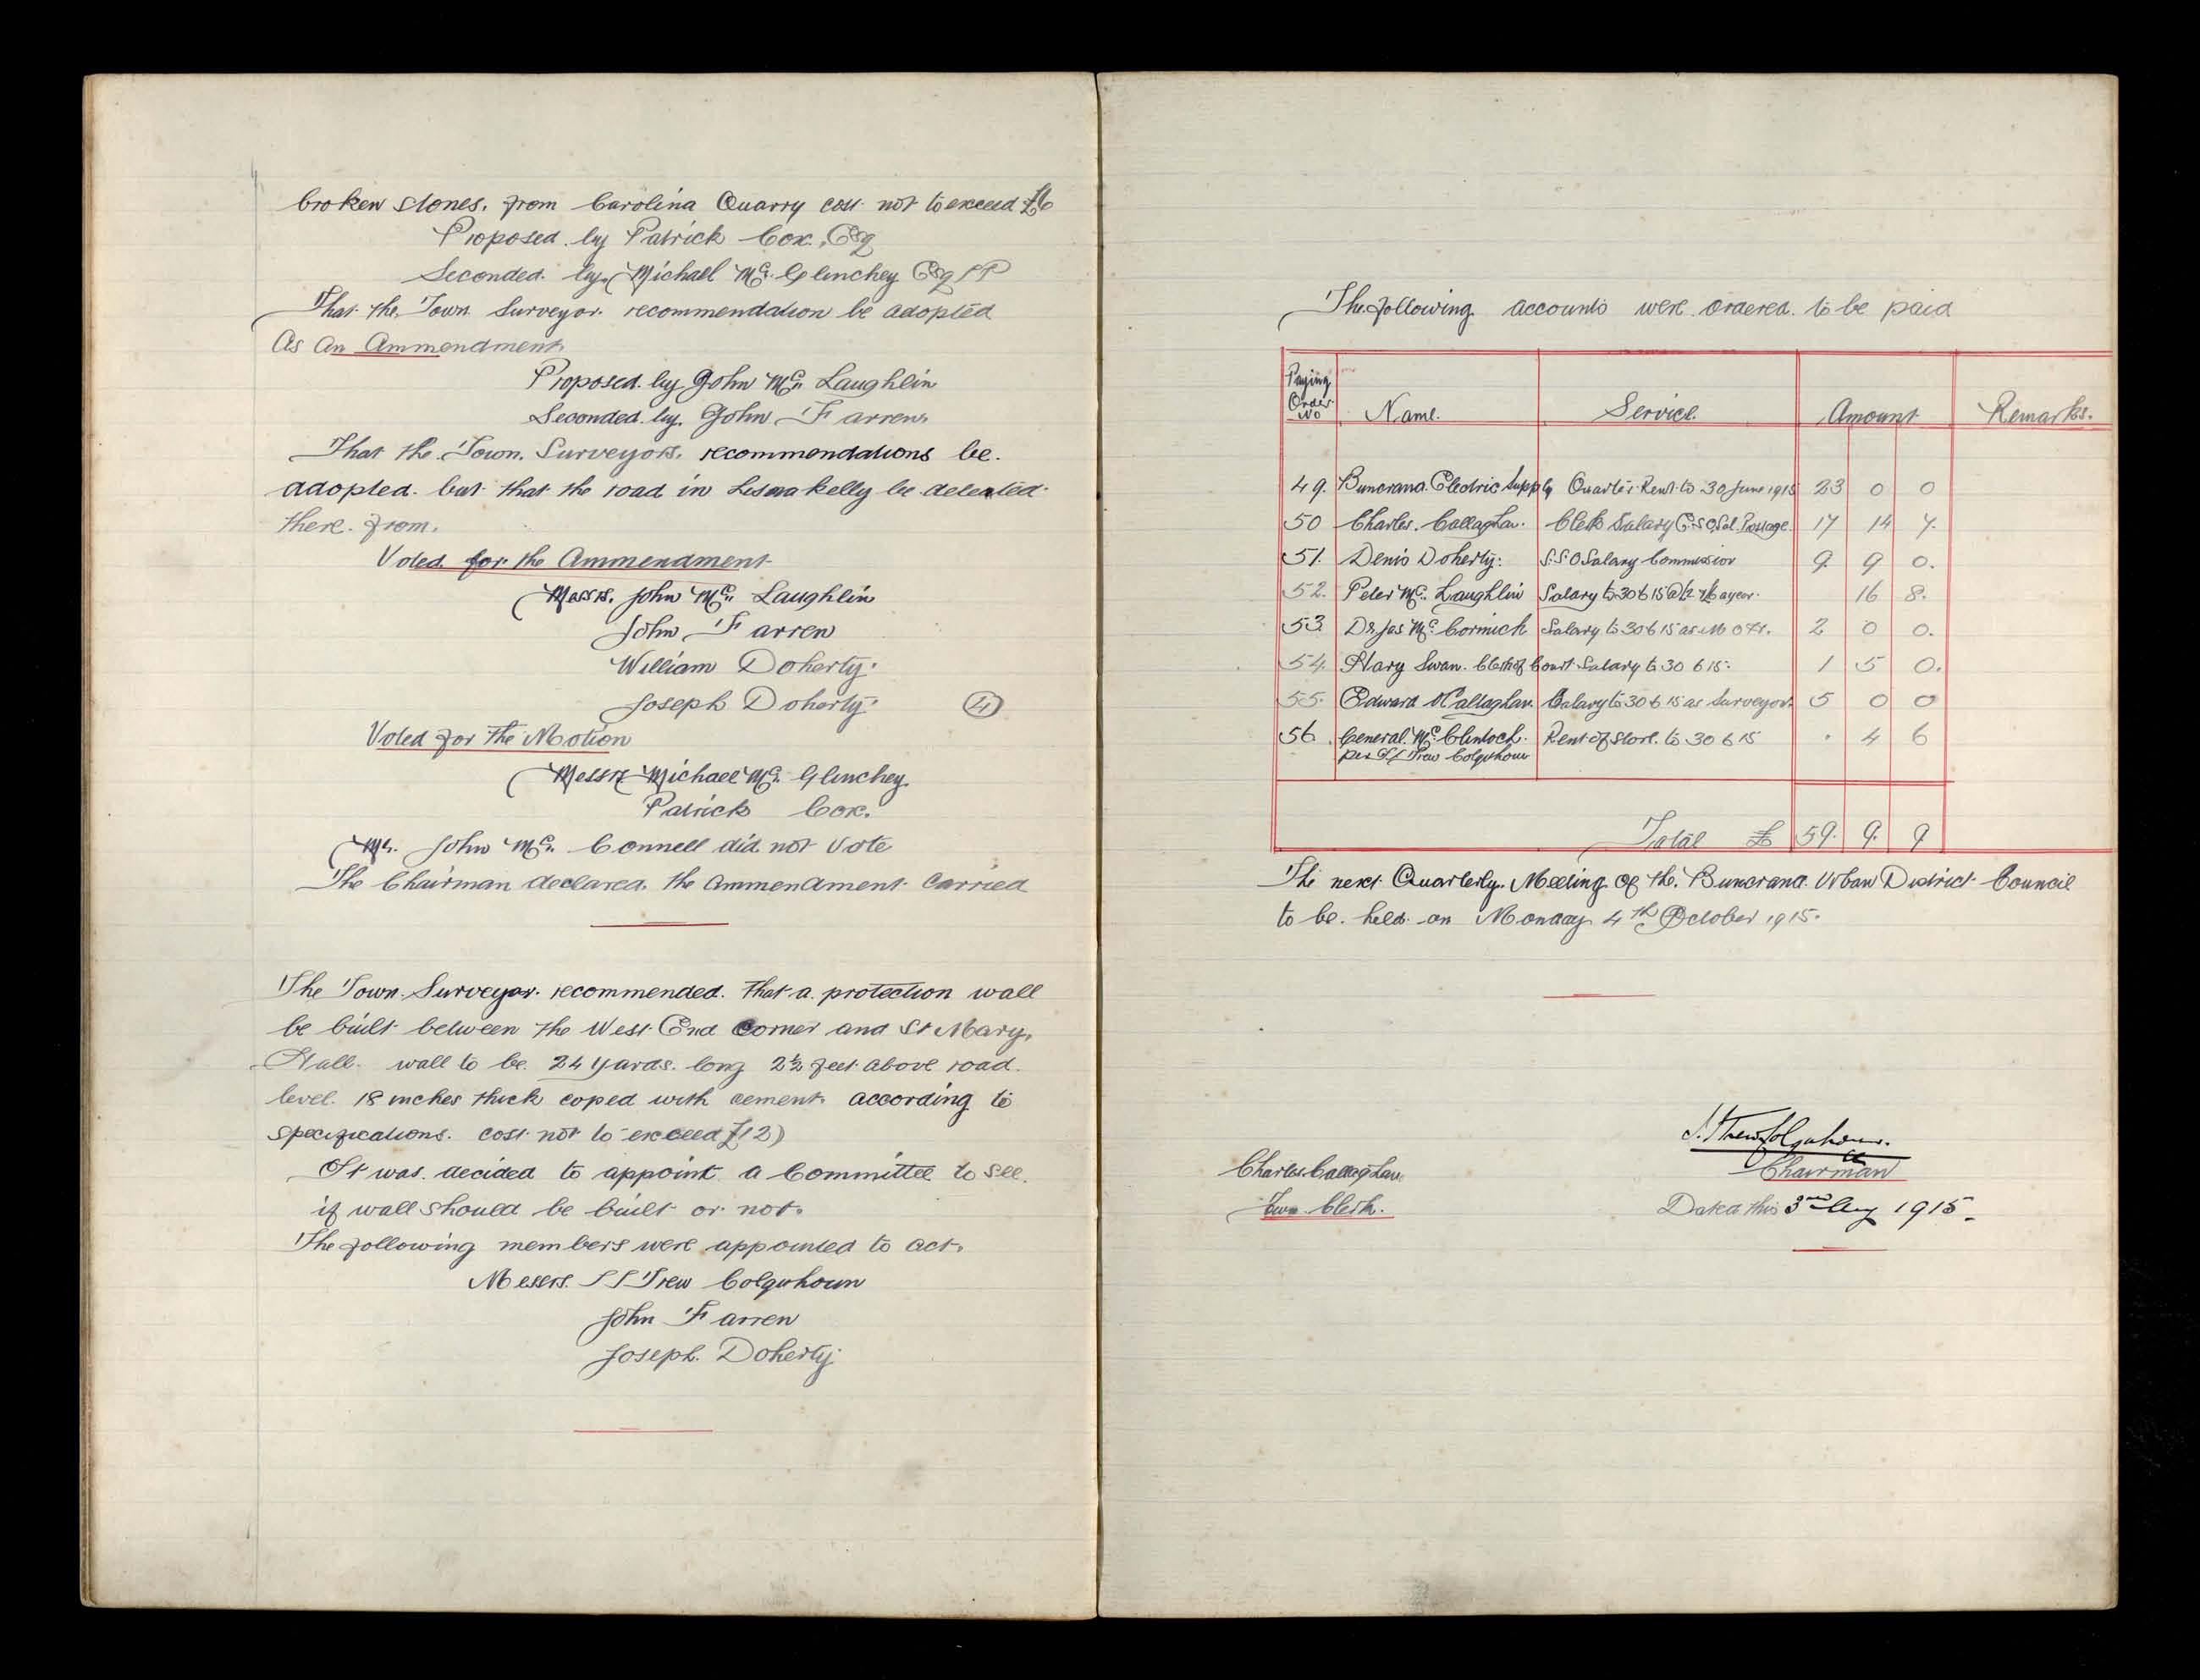 broken stones. from Carolina Quarry cost not to exceed £6
Proposed by Patrick Cox. Esq
Seconded by Michael Mc. Glinchey Esq JP
That the Town Surveyor recommendation be adopted
As An Ammendment
Proposed by John Mc. Laughlin
Seconded by. John Farren.
That the Town. Surveyors. recommendations be.
adopted. but that the road in Lisnakelly be deleted
there. from.
Voted for the Ammendment
Messrs. John Mc. Laughlin
John Farren
William Doherty.
Joseph Doherty. 4
Voted for The Motion
Messrs Michael Mc. Glinchey
Patrick Cox.
Mr. John Mc. Connell did not Vote
The Chairman declared. the Ammendment Carried
The Town. Surveyor. recommended. that a protection wall
be built between the West End Corner and St Mary,
Hall. wall to be. 24 yards. long 2½ feet above road.
level. 18 inches thick coped with cement. according to
specifications. cost not to exceed £12)
It was. decided to appoint a Committee to see.
if wall should be built or not.
The following members were appointed to act.
Messrs. J J Trew Colquhoun
John Farren
Joseph. Doherty.
The following accounts were ordered. to be paid
Paying Order No Name. Service. Amount Remarks.
49. Buncrana. Electric Supply Quarter Rent to 30 June 1915 23 0 0
50 Charles. Callaghan. Clerk Salary E.S.O Sal. Postage. 17 14 7.
51. Denis Doherty. S.S.O Salary Commission 9. 9 0.
52. Peter Mc. Laughlin Salary to 30 6 15 @ a year. 16 8.
53. Dr Jas Mc. Cormick Salary to 30 6 15 as M O H. 2 0 0.
54. Harry Swan. Clerk of Court Salary to 30 6 15. 1 5 0.
55. Edward O'Callaghan. Salary to 30 6 15 as Surveyor. 5 0 0
56. General. Mc. Clintock. Rent of Store. to 30 6 15 . 4 6
per J J Trew Colquhoun
Total £ 59. 9. 9
The next Quarterly. Meeting of the. Buncrana. Urban District Council
to be. held on Monday 4th October 1915.
J. J Trew Colquhoun.
Charles. Callaghan. Chairman
Town Clerk. Dated this 3rd Aug 1915.